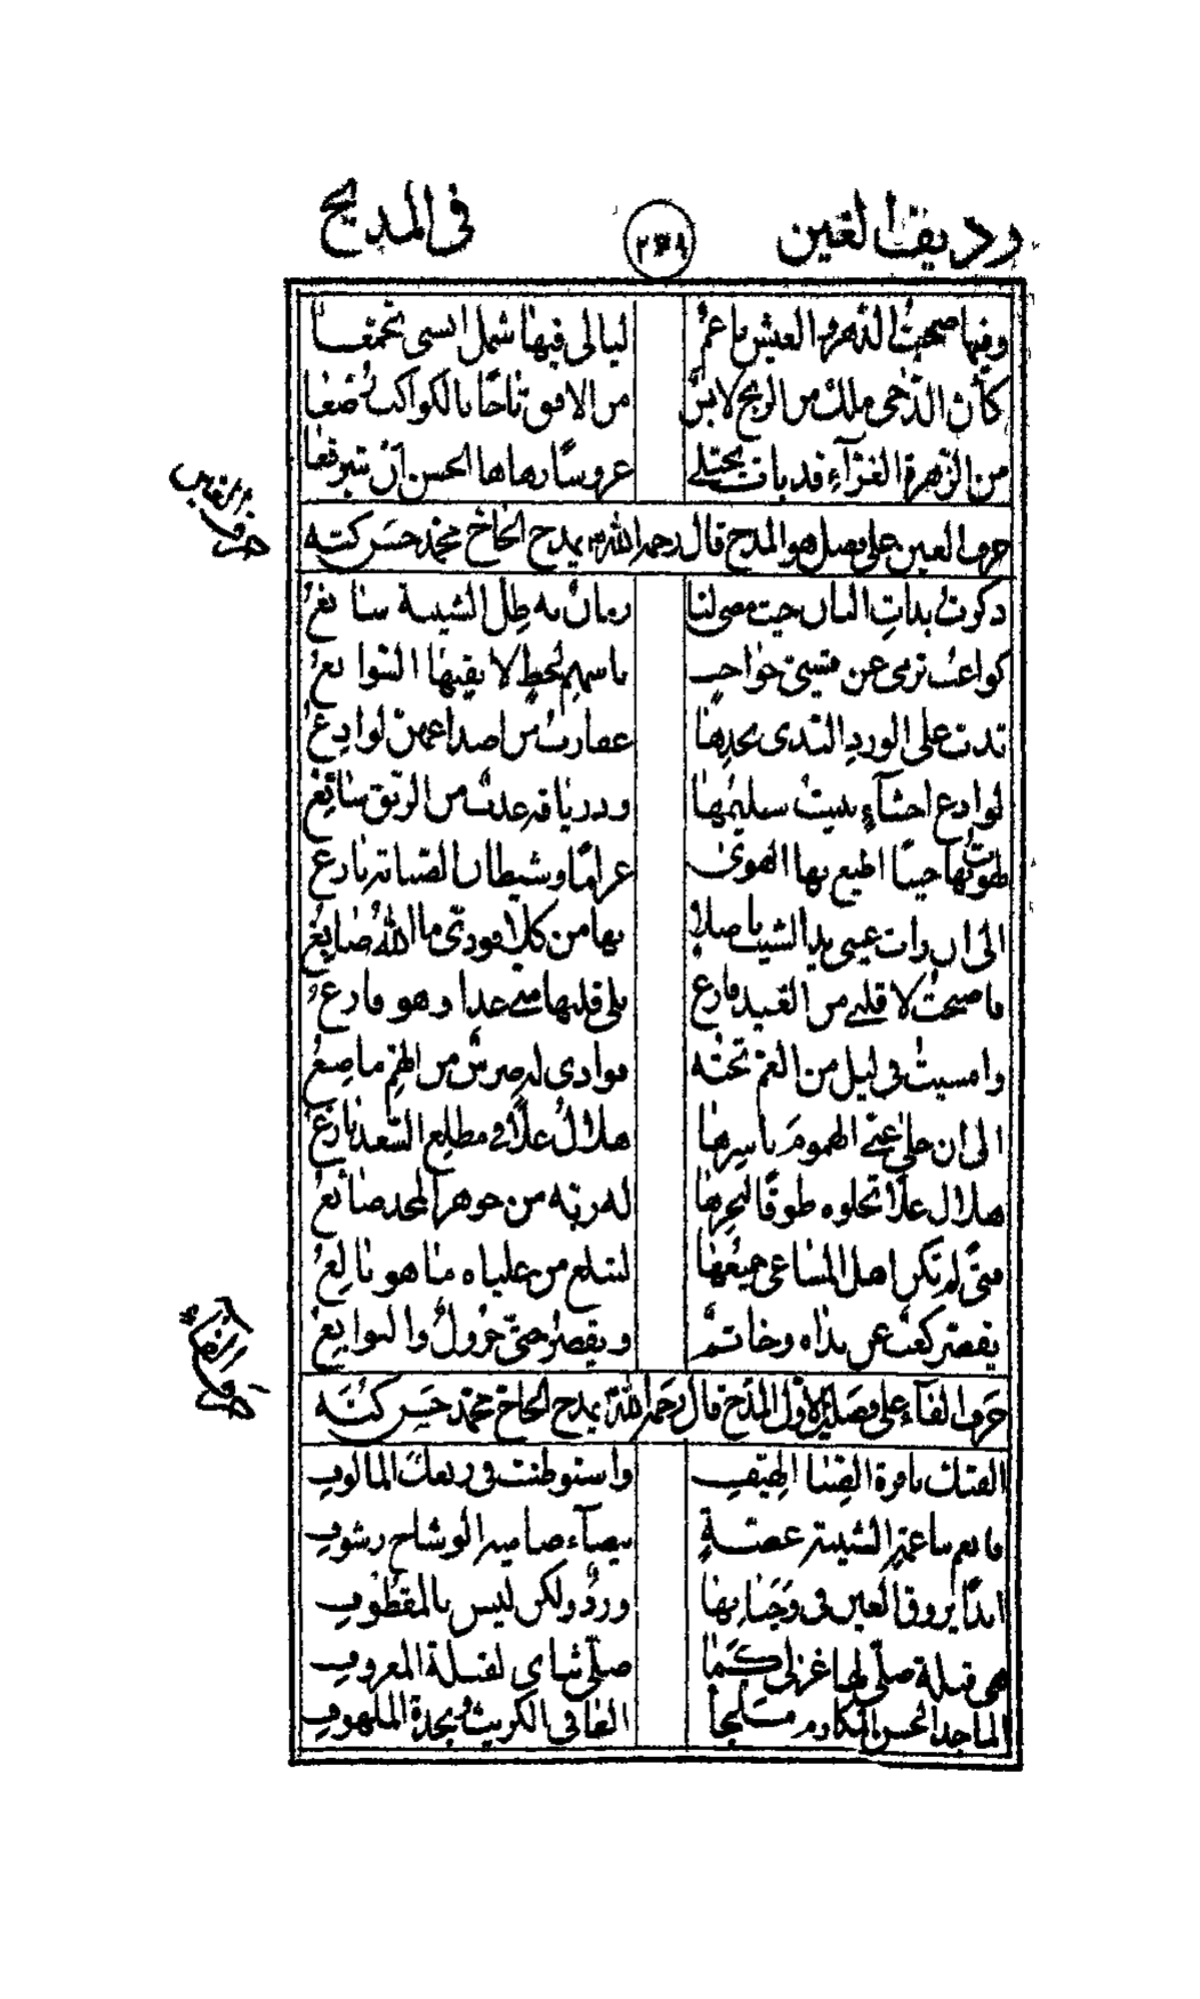 رديف الغين ٢٦٩ في المديح
وفيها صحبتُ الدهر والعيش ناعمٌ ليالي فيها شمل انسي تجمّعا
كأن الدّجى ملك من الزنج لابسٌ من الافق تاجًا بالكواكب رُصّعا
من الزهرة الغرّآء قد بات يجتلي عروسًا زهاها الحسن أن تتبرقعا
حرف الغين
حرف الغين على فصل هو المدح قال رحمه الله يمدح الحاج محمد حسن كبّه
ذكرت بذاتِ البان حيث مضى لنا زمانٌ به ظل الشبيبة سابغُ
كواعب ترمي عن قسيّ حواجبٍ باسهم لحظٍ لا يقيها السوابغُ
تدبّ على الورد الندي بخدها عقاربُ من اصداغهنّ لوادغُ
لوادغ احشآءٍ يبيت سليمها ودرياقه عذبٌ من الريق سائغُ
لهوتُ بها حينًا اطيع بها الهوى غرامًا وشيطان الصبا بيَ نازغُ
الى ان رات عيني يد الشيب ناصلًا بها من كلا فوديّ ما اللهُ صابغُ
فاصبحتُ لا قلبي من الغيد فارغ بلى قلبها مني غدا وهو فارغُ
وامسيتُ في ليل من الغم تحته فوادي له ضرسٌ من الهمّ ماضغُ
الى ان جلى عني الهمومَ باسرها هلالُ علًا في مطلع السعد بازغُ
هلال علًا تجلوه طوقًا لنحرها له ربّة من جوهر المجد صائغُ
فتًى لم تكن اهل المساعي جميعها لتبلغ من علياه ما هو بالغُ
يقصر كعبٌ عن نداه وحاتمٌ ويقصر حتى جرولٌ والنوابغُ
حرف الفاء
حرف الفآء على فصلين الاول المدح قال رحمه الله يمدح الحاج محمد حسن كبّه
الفتك نافرة الظبا الهيّفِ واستوطنت في ربعك المالوفِ
فانعم بناعمةِ الشبيبة غضّةٍ بيضآء ضامية الوشاح رشوفِ
ابدًا يروق العين في وجناتها وردٌ ولكن ليس بالمقطوفِ
هي قبلة صلّى لها غزلي كما صلّى ثناي لقبلة المعروفِ
الماجد الحسن المكارم ملجأ العافي الكريث ونجدة الملهوفِ